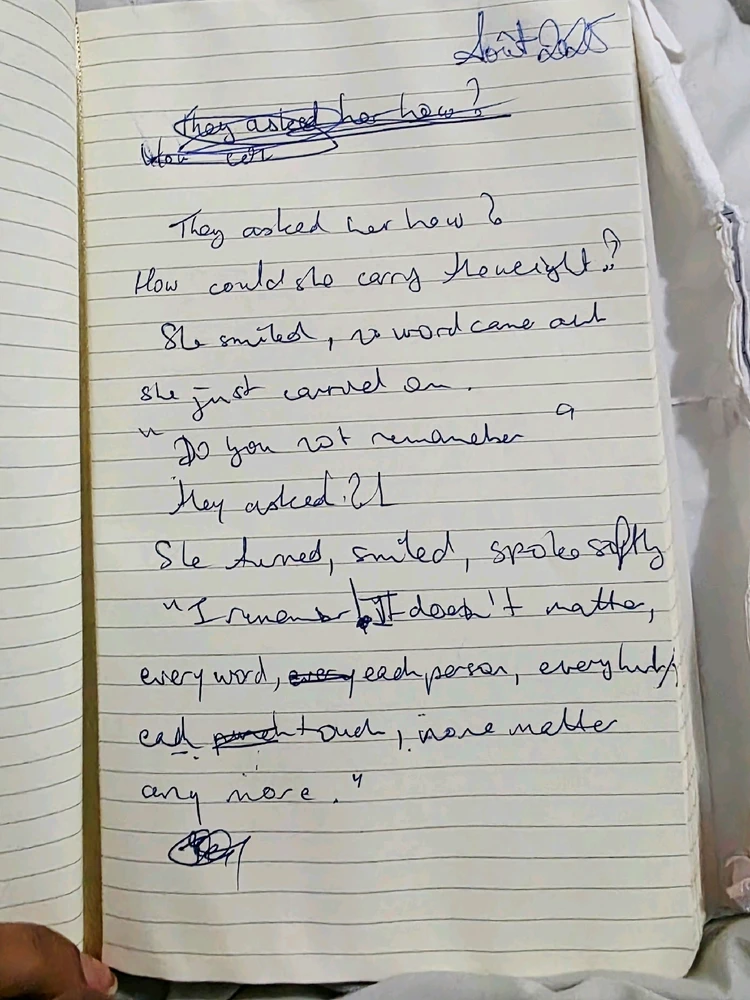 Août 2025
They asked her how?
How
They asked her how?
How could she carry the weight?
She smiled, no word came out
she just carried on.
"Do you not remember"
they asked?!
She turned, smiled, spoke softly
"I remember! It doesn't matter,
every word, every each person, every hurt,
each touch, none matter
any more."